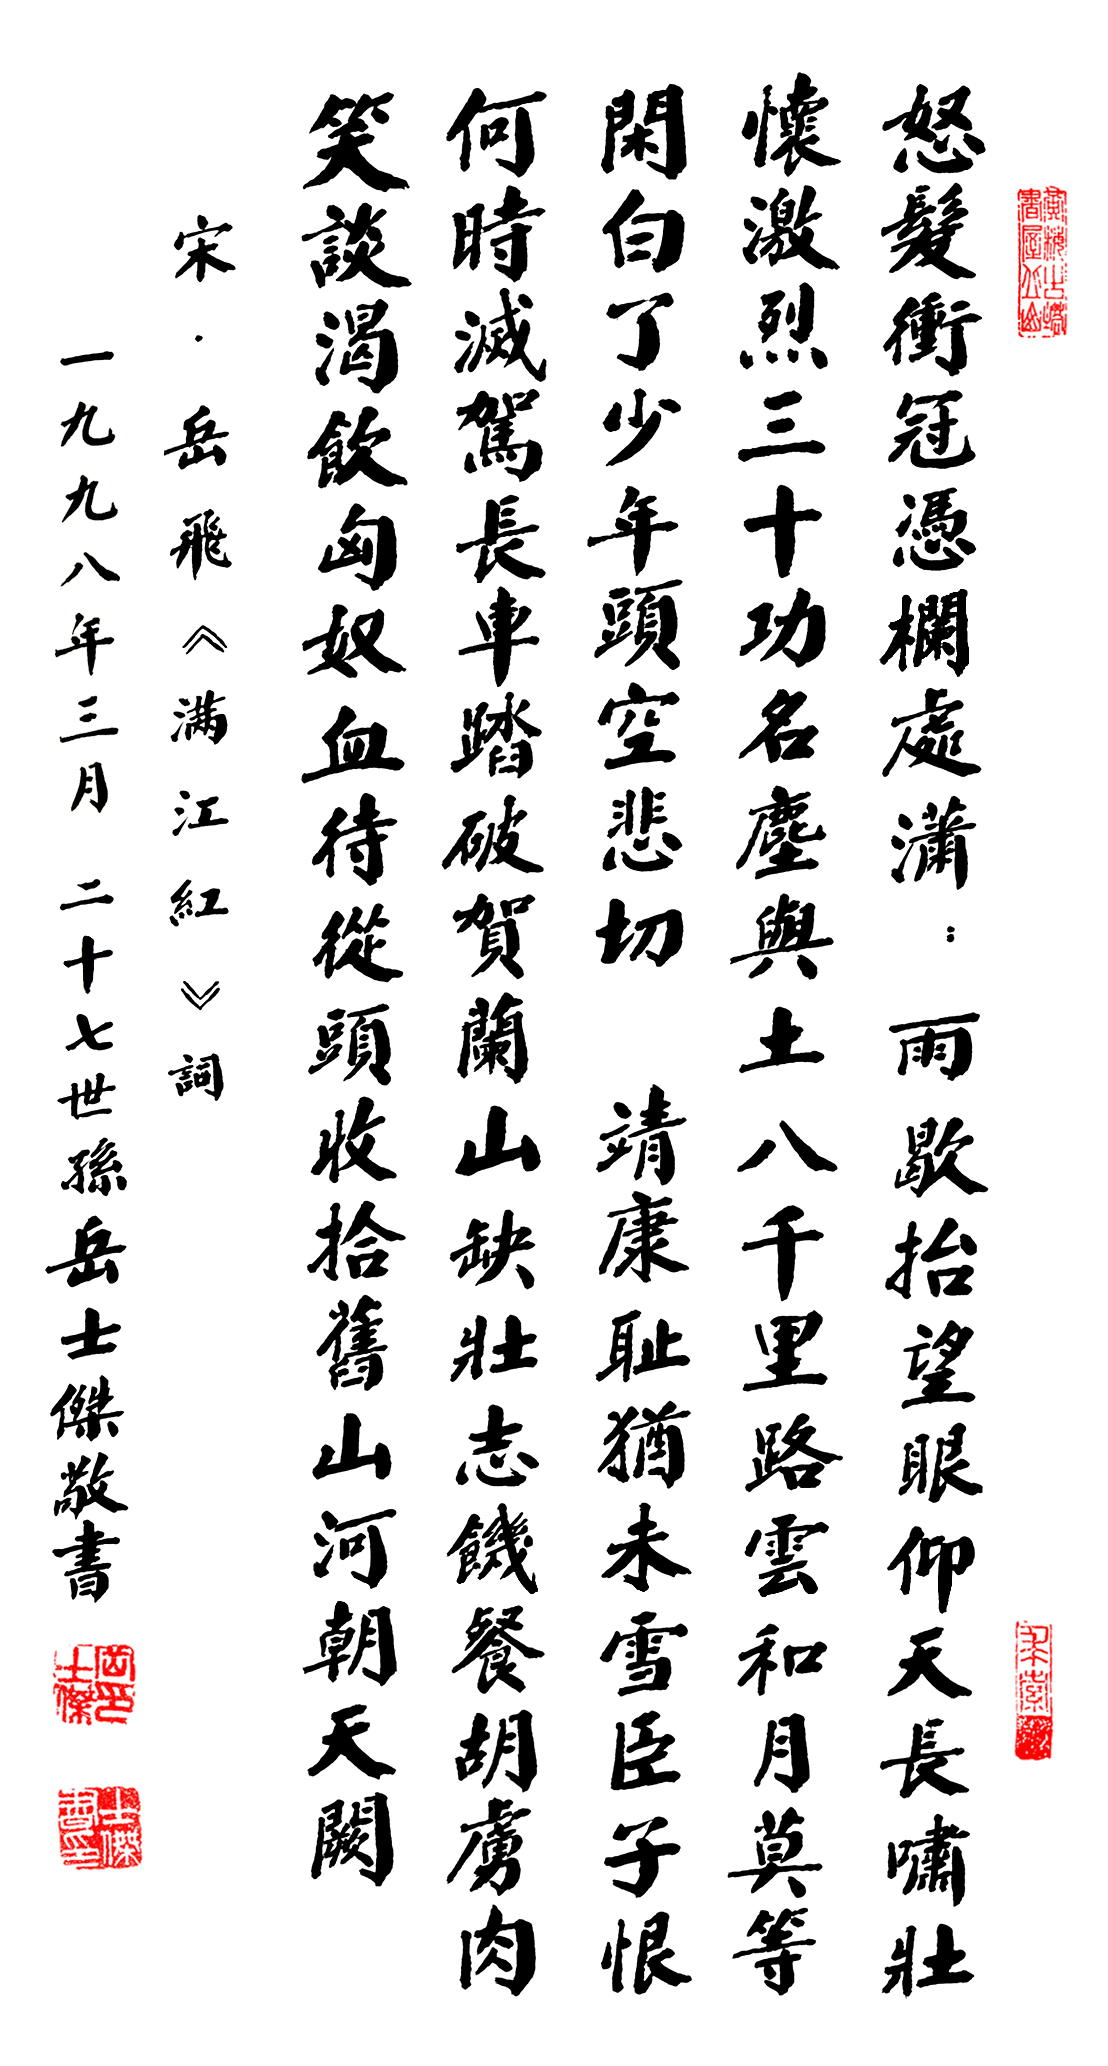 怒髮衝冠憑欄處瀟：雨歇抬望眼仰天長嘯壯
懷激烈三十功名塵與土八千里路雲和月莫等
閑白了少年頭空悲切　靖康耻猶未雪臣子恨
何時滅駕長車踏破賀蘭山缺壯志饑餐胡虜肉
笑談渴飲匈奴血待從頭收拾舊山河朝天闕
宋·岳飛《满江紅》詞
一九九八年三月　二十七世孫岳士傑敬書
岳士傑印
士傑書印